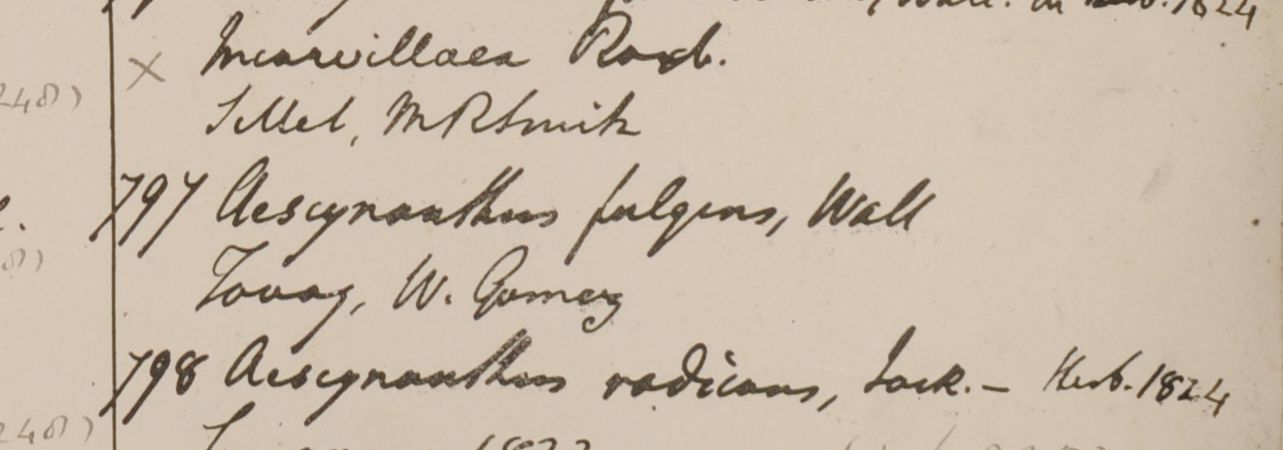 Wall. in Herb. 1824
248)
× Incarvillaea Roxb.
Sillet, M R Smith
797 Aescynanthus fulgens, Wall
Tovay, W. Gomez
798 Aescynanthus radicans, Jack. – Herb. 1824
248)
1822